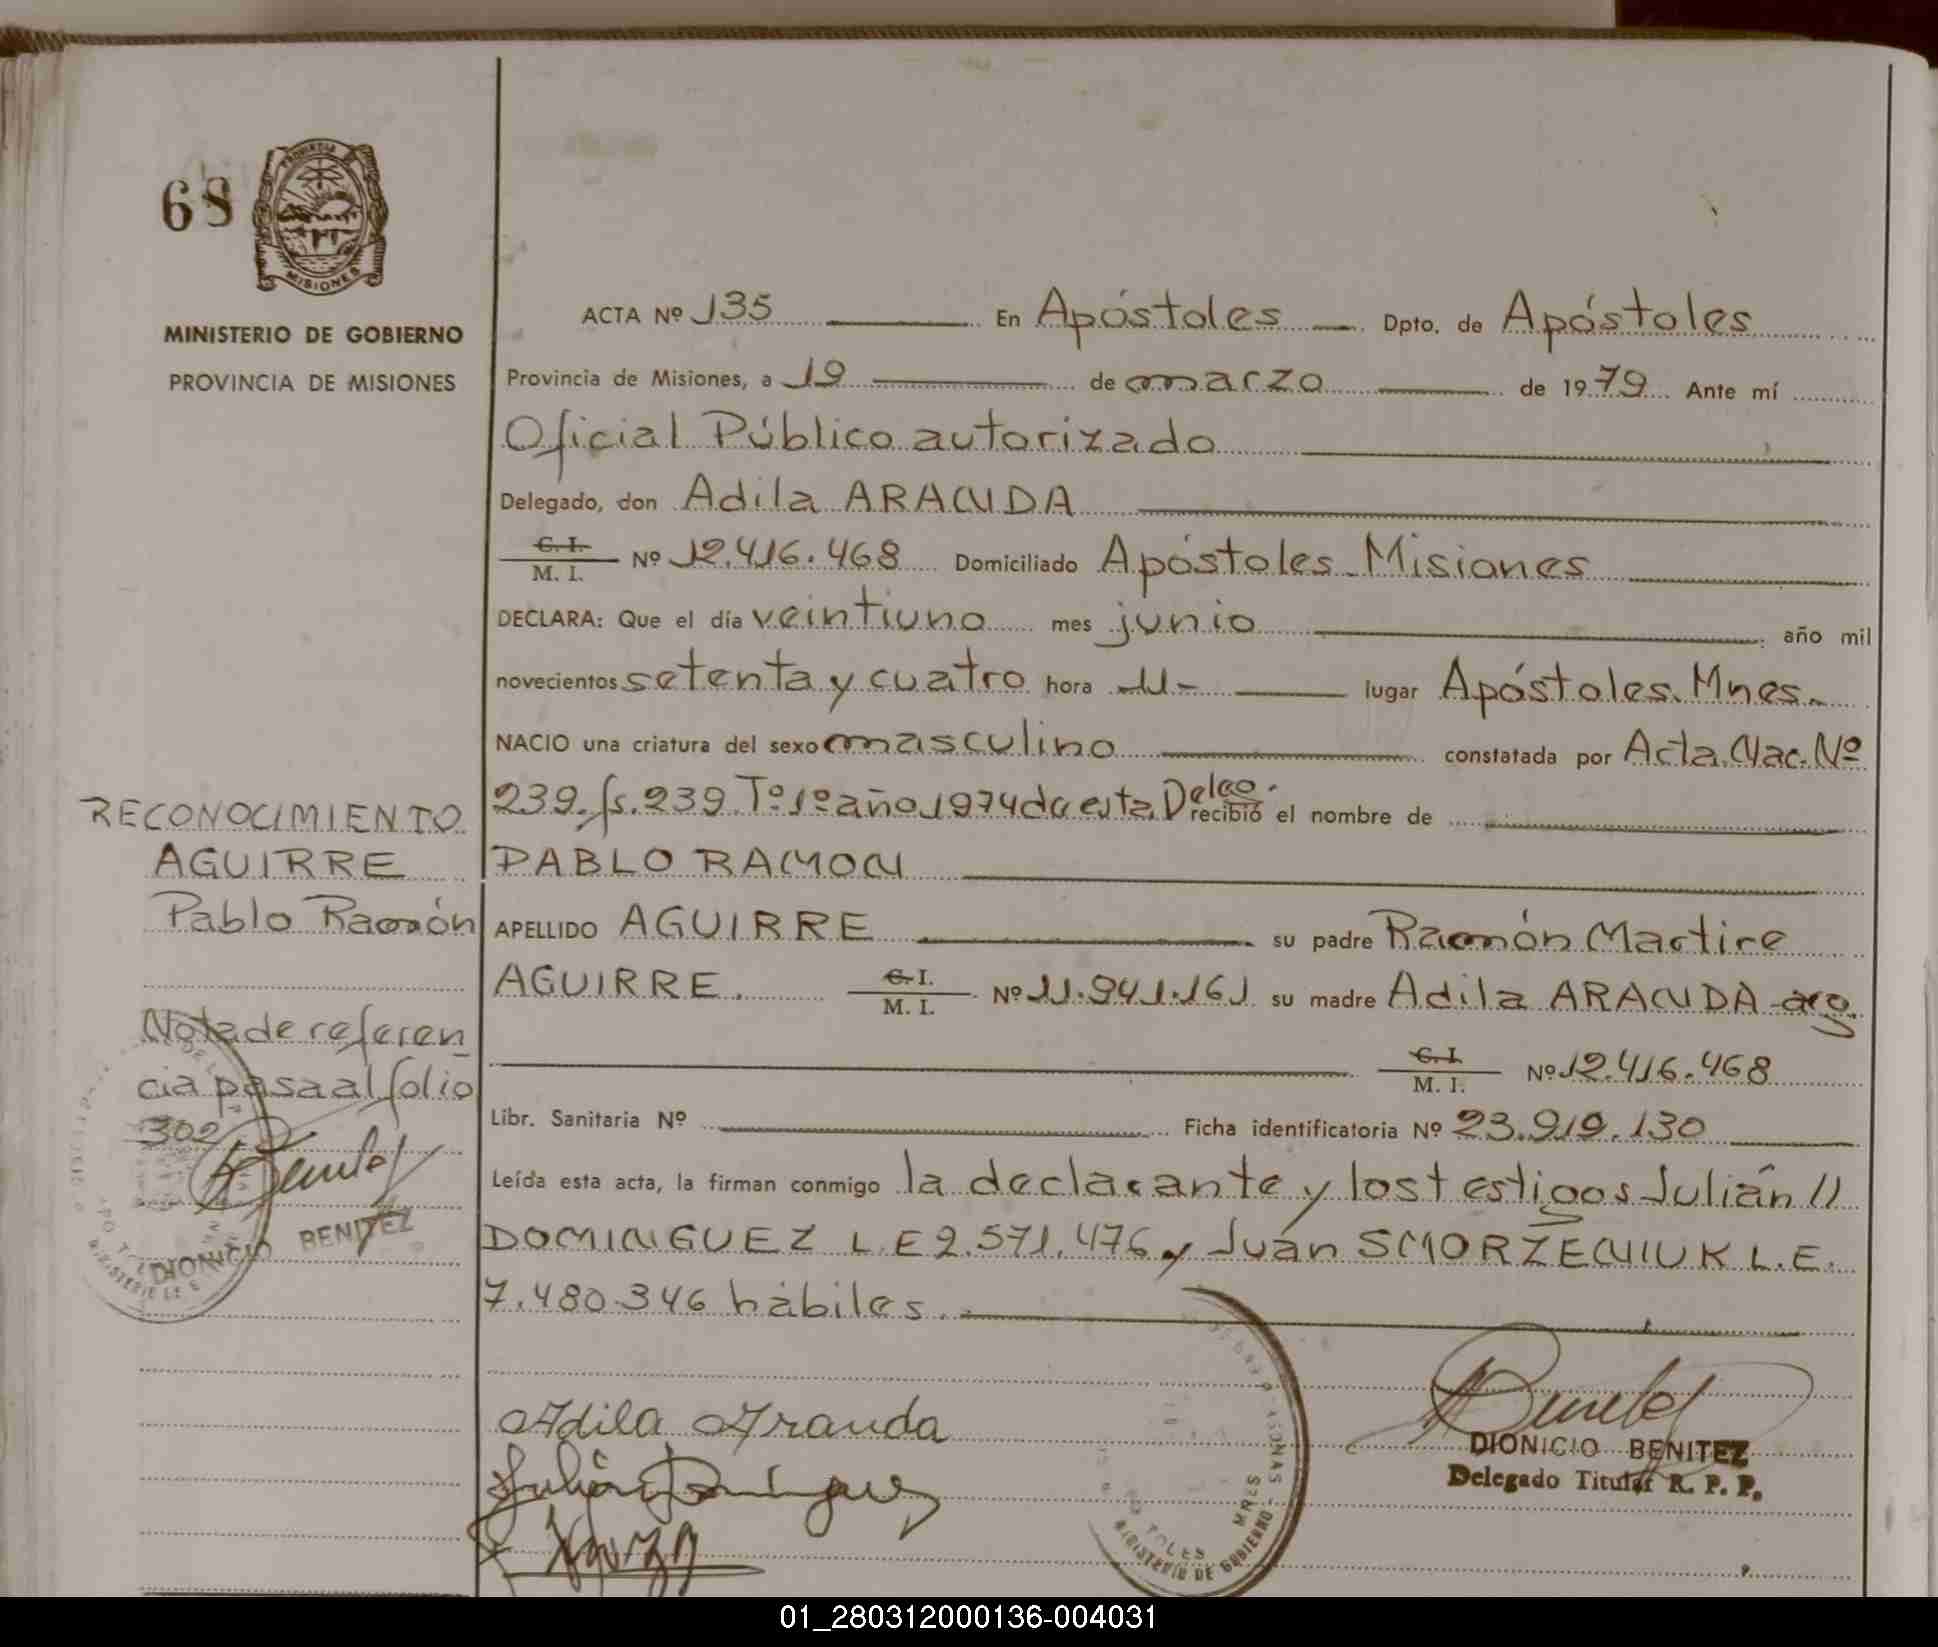 68
PROVINCIA
MISIONES
MINISTERIO DE GOBIERNO
PROVINCIA DE MISIONES
ACTA Nº 135 En Apóstoles Dpto. de Apóstoles
Provincia de Misiones, a 19 de marzo de 1979 Ante mí
Oficial Público autorizado
Delegado, don Adila ARANDA
C. I.
M. I. Nº 12.416.468 Domiciliado Apóstoles Misiones
DECLARA: Que el día veintiuno mes junio año mil
novecientos setenta y cuatro hora 11- lugar Apóstoles. Mnes.
NACIO una criatura del sexo masculino constatada por Acta Nac. Nº
239. fs. 239. Tº 1º año 1974 de esta Deleg. recibió el nombre de
PABLO RAMON
APELLIDO AGUIRRE su padre Ramón Martire
AGUIRRE. C. I. M. I. Nº 11.941.161 su madre Adila ARANDA arg.
C. I. M. I. Nº 12.416.468
Libr. Sanitaria Nº Ficha identificatoria Nº 23.919.130
Leída esta acta, la firman conmigo la declarante y los testigos Julián
DOMINGUEZ L.E 2.571.476 y Juan SMORZENIUK L.E.
7.480.346 hábiles.
RECONOCIMIENTO
AGUIRRE
Pablo Ramón
Nota de referen
cia pasa al folio
302
DIONICIO BENITEZ
Adila Aranda
Julián Dominguez
DIONICIO BENITEZ
Delegado Titular R. P. P.
MINISTERIO DE GOBIERNO
MNES
01_280312000136-004031